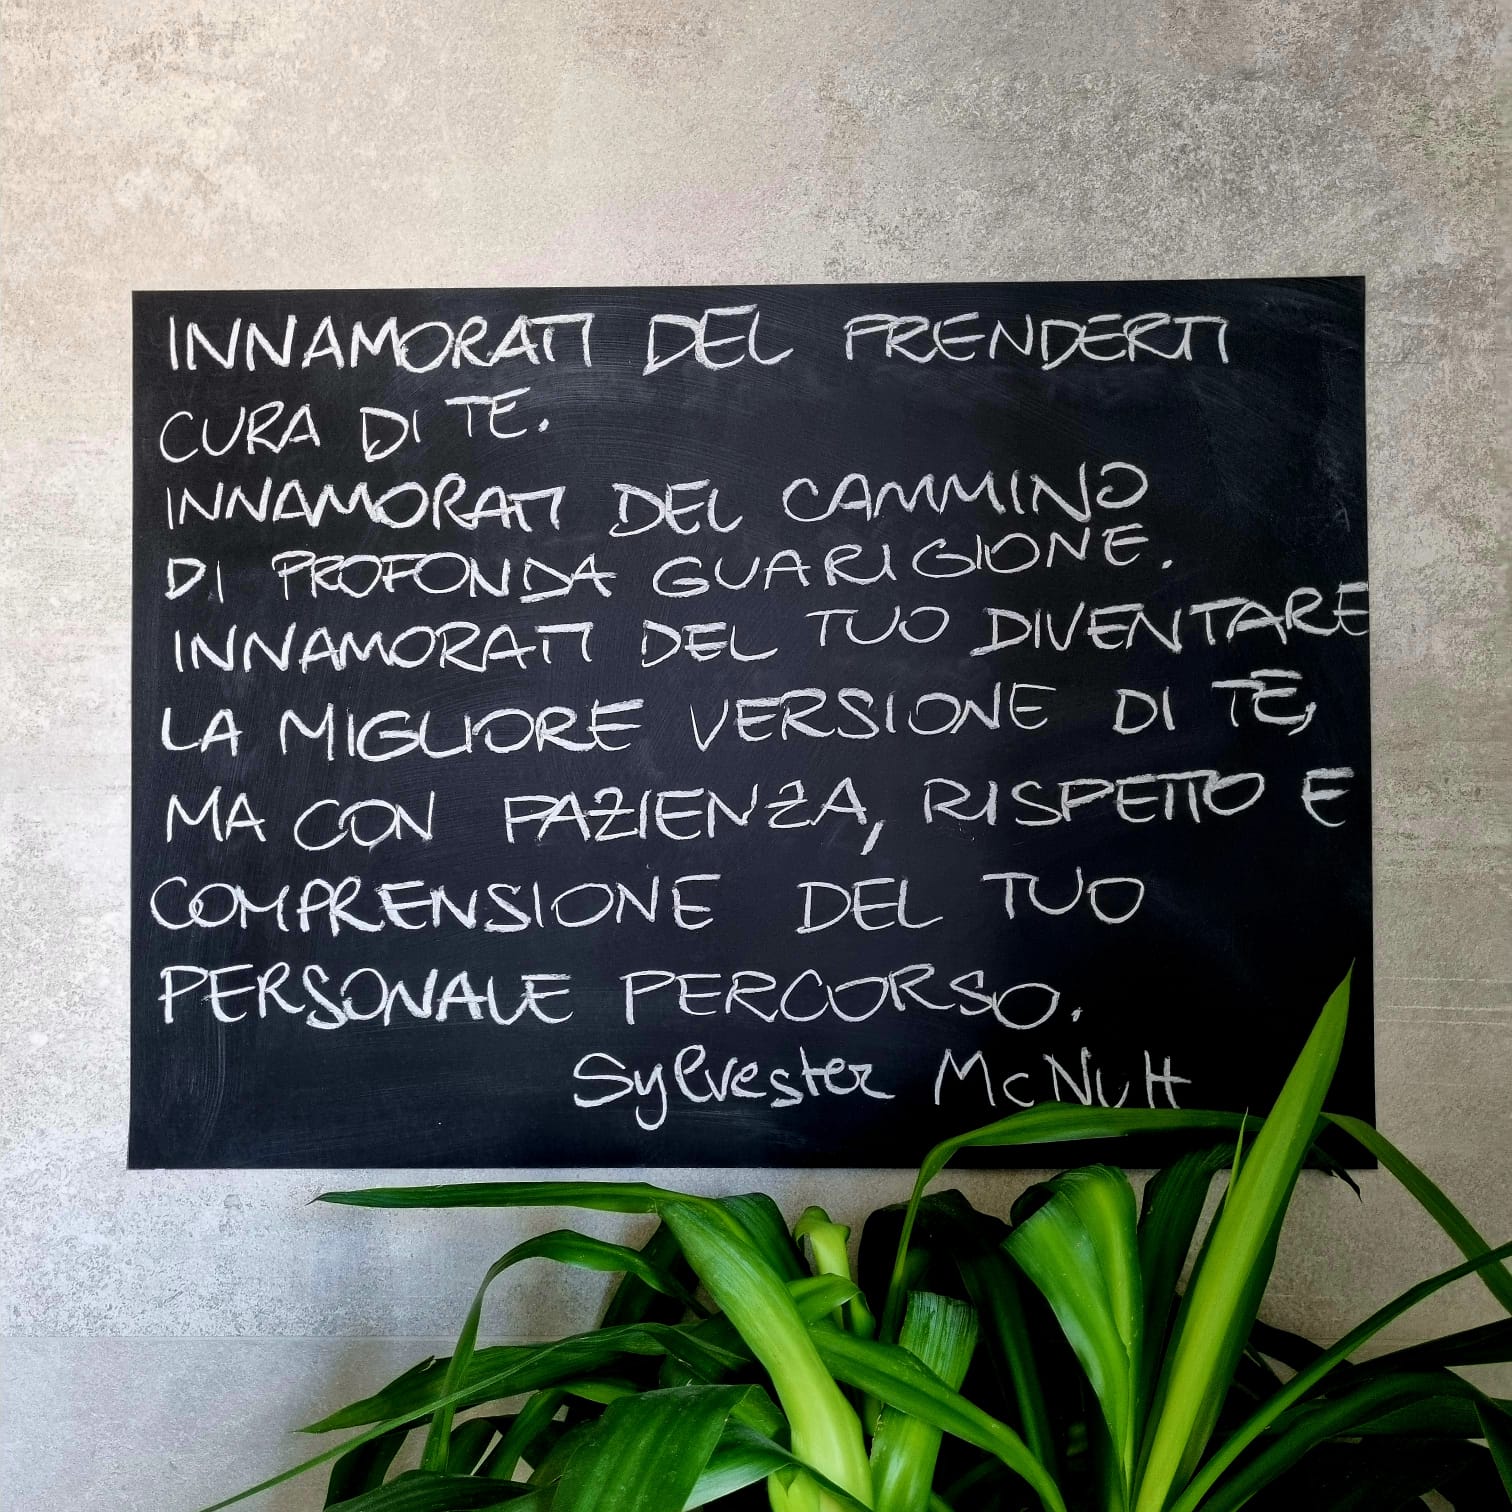 INNAMORATI DEL PRENDERTI
CURA DI TE.
INNAMORATI DEL CAMMINO
DI PROFONDA GUARIGIONE.
INNAMORATI DEL TUO DIVENTARE
LA MIGLIORE VERSIONE DI TE,
MA CON PAZIENZA, RISPETTO E
COMPRENSIONE DEL TUO
PERSONALE PERCORSO.
Sylvester McNutt